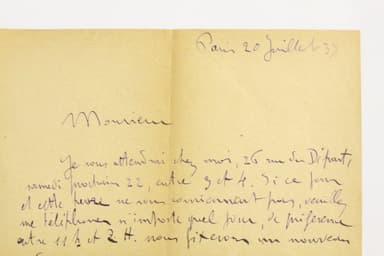 Paris 20 Juillet 39
Monsieur
Je vous attendrai chez moi, 26 rue du Départ,
samedi prochain 22, entre 3 et 4. Si ce jour
et cette heure ne vous conviennent pas, veuillez
me téléphoner n'importe quel jour, de préférence
entre 11 h et 2 H. nous fixerons un nouveau